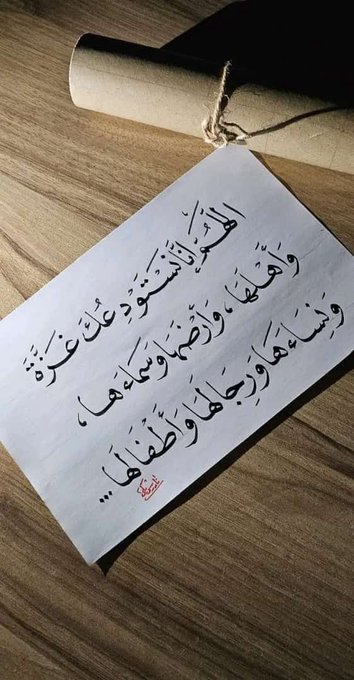 اللَّهُمَّ إِنَّا نَسْتَوْدِعُكَ غَزَّةَ
وَأَهْلَهَا، وَأَرْضَهَا وَسَمَاءَهَا،
وَنِسَاءَهَا وَرِجَالَهَا وَأَطْفَالَهَا...